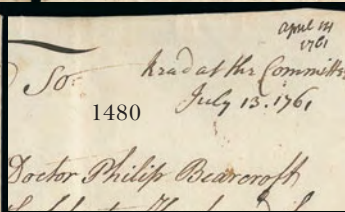 April 14
1761
So:
Read at the Committee
July 13. 1761
1480
Doctor Philip Bearcroft